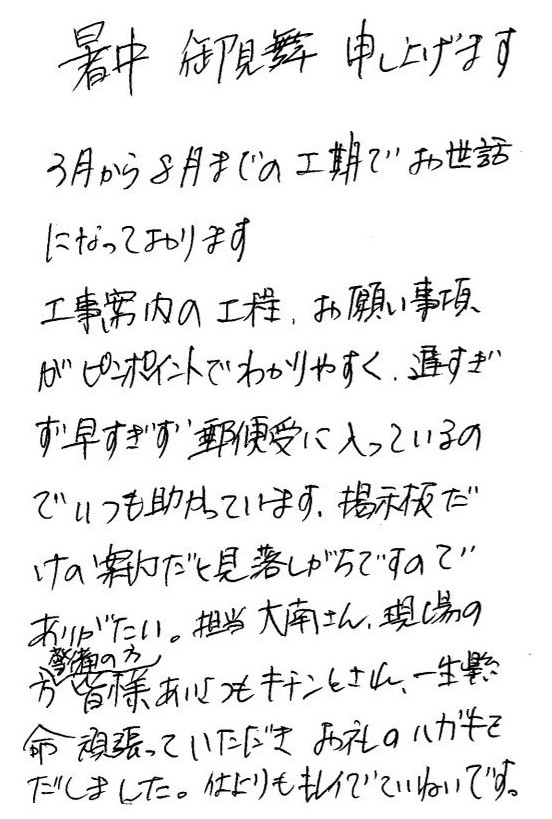 暑中 御見舞 申し上げます
3月から8月までの工期でお世話
になっております
工事案内の工程、お願い事項、
がピンポイントでわかりやすく、遅すぎ
ず早すぎず郵便受に入っているの
でいつも助かっています、掲示板だ
けの案内だと見落しがちですので
ありがたい。担当 大南さん、現場の
警備の方
方 皆様 あいさつもキチンとされ、一生懸
命 頑張っていただき お礼のハガキを
だしました。何よりもキレイでていねいです。